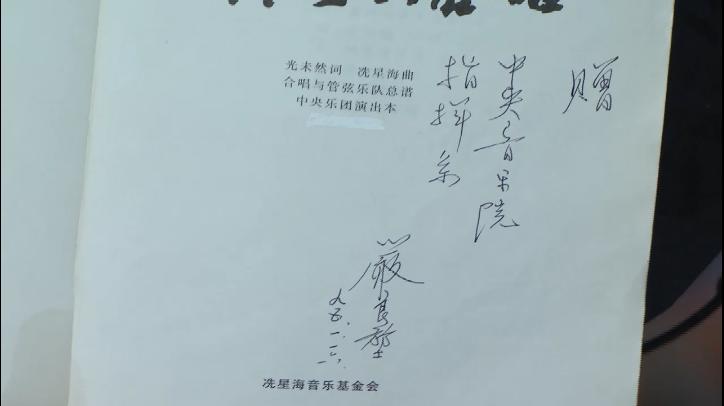 光未然词 冼星海曲
合唱与管弦乐队总谱
中央乐团演出本
赠
中央音乐院
指挥系
嚴良堃
九五.一.二六.
冼星海音乐基金会